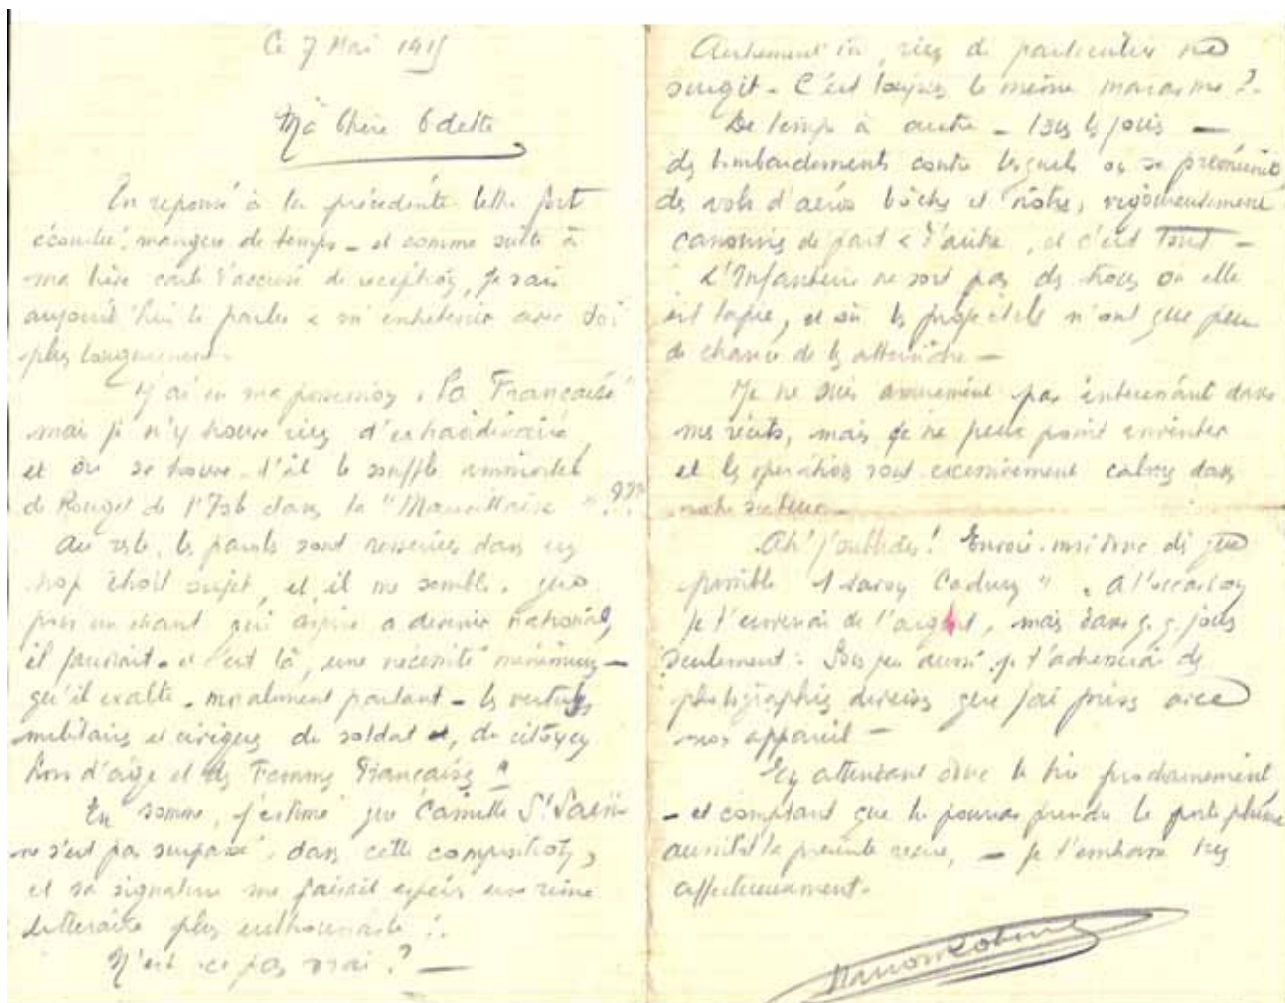 Ce 7 Mai 1915
Ma Chère Odette
En réponse à ta précédente lettre fort
écourtée, manque de temps _ et comme suite à
ma brève carte d'accusé de réception, je vais
aujourd'hui te parler & m'entretenir avec toi
plus longuement.
J'ai en ma possession "La Française"
mais je n'y trouve rien d'extraordinaire,
et où se trouve-t'il le souffle immortel
de Rouget de l'Isle dans la "Marseillaise" ???
Au reste, les paroles sont resserrées dans un
trop étroit sujet, et, il me semble, que
pour un chant qui aspire à devenir national,
il faudrait _ et c'est là, une nécessité
qu'il exalte _ moralement parlant _ les vertus
militaires et civiques du soldat et, du citoyen
hors d'âge et des Femmes Françaises
En somme, j'estime que Camille St Saëns
ne s'est pas surpassé, dans cette composition,
et sa signature me faisait espérer une
littéraire plus enthousiaste !.
N'est-ce pas vrai ? _
Autrement ici, rien de particulier ne
surgit _ C'est toujours le même marasme ?.
De temps à autre _ tous les jours _
des bombardements contre lesquels on se prémunit,
des vols d'aéros boches et nôtres, vigoureusement
canonnés de part & d'autre, et c'est tout _
L'Infanterie ne sort pas des trous où elle
est tapie, et où les projectiles n'ont que peu
de chance de les atteindre _
Je ne suis aucunement pas intéressant dans
mes récits, mais je ne peux point inventer
et les opérations sont excessivement calmes dans
notre secteur _
Ah! j'oubliais! Envoie-moi donc dès que
possible 1 savon Cadum ". A l'occasion
je t'enverrai de l'argent, mais dans q.q. jours
seulement. Sous peu aussi je t'adresserai des
photographies diverses que j'ai prises avec
mon appareil _
En attendant donc te lire prochainement
_ et comptant que tu pourras prendre le porte plume
aussitôt la présente reçue, _ je t'embrasse très
affectueusement.